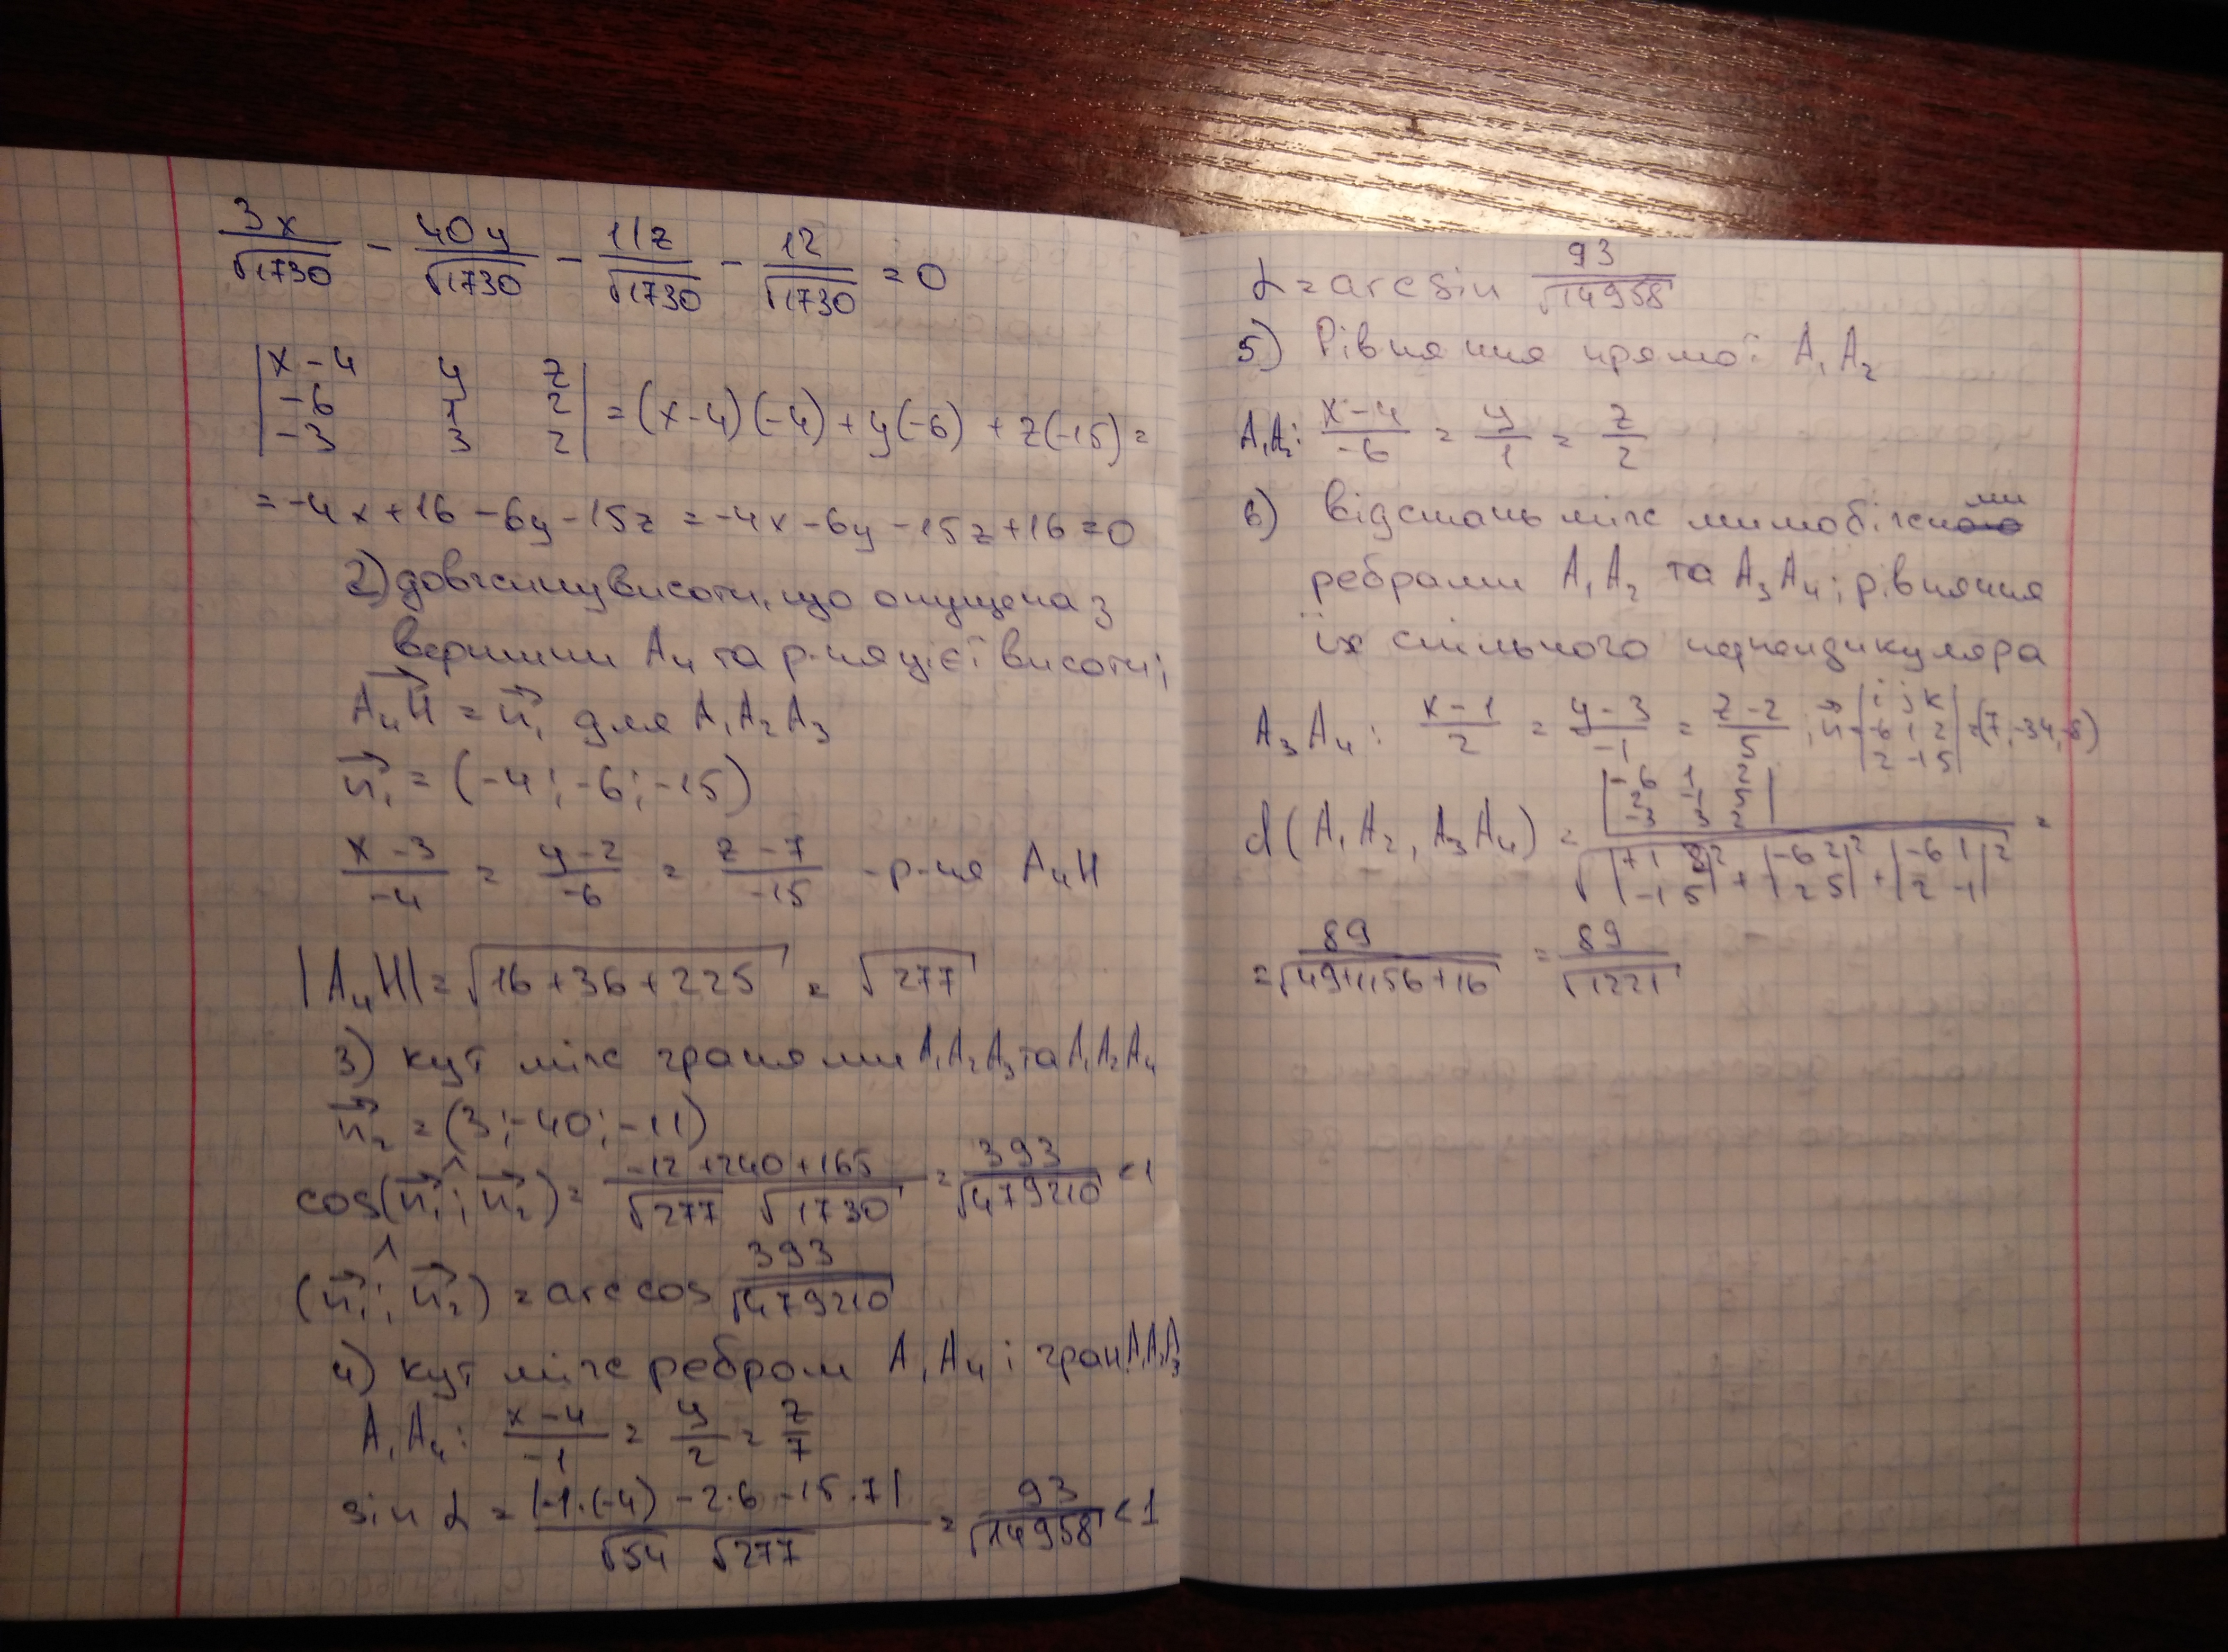 3x/√1730 - 40y/√1730 - 11z/√1730 - 12/√1730 = 0
|x-4 y z|
|-6 1 2| = (x-4)(-4) + y(-6) + z(-15) =
|-3 3 2|
= -4x + 16 - 6y - 15z = -4x - 6y - 15z + 16 = 0
2) довжину висоти, що опущена з
вершини A₄ та р-ня цієї висоти;
A₄H = n₁ для A₁A₂A₃
n₁ = (-4; -6; -15)
(x-3)/-4 = (y-2)/-6 = (z-7)/-15 - р-ня A₄H
|A₄H| = √(16+36+225) = √277
3) кут між гранями A₁A₂A₃ та A₁A₂A₄
n₂ = (3; -40; -11)
cos(n₁ ^; n₂) = (-12+240+165)/(√277 √1730) = 393/√479210 < 1
(n₁ ^; n₂) = arccos 393/√479210
4) кут між ребром A₁A₄ і гран. A₁A₂A₃
A₁A₄: (x-4)/-1 = y/2 = z/7
sin α = |-1·(-4) - 2·6 - 15·7|/(√54 √277) = 93/√14958 < 1
α = arcsin 93/√14958
5) Рівняння прямої A₁A₂
A₁A₂: (x-4)/-6 = y/1 = z/2
6) відстань між мимобіжними
ребрами A₁A₂ та A₃A₄; рівняння
їх спільного перпендикуляра
A₃A₄: (x-1)/2 = (y-3)/-1 = (z-2)/5; n = |i j k; -6 1 2; 2 -1 5| = (7, -34, -8)
d(A₁A₂, A₃A₄) = |-6 1 2; 2 -1 5; -3 3 2| / √(|1 2; -1 5|² + |-6 2; 2 5|² + |-6 1; 2 -1|²) =
= 89/√(49+1156+16) = 89/√1221